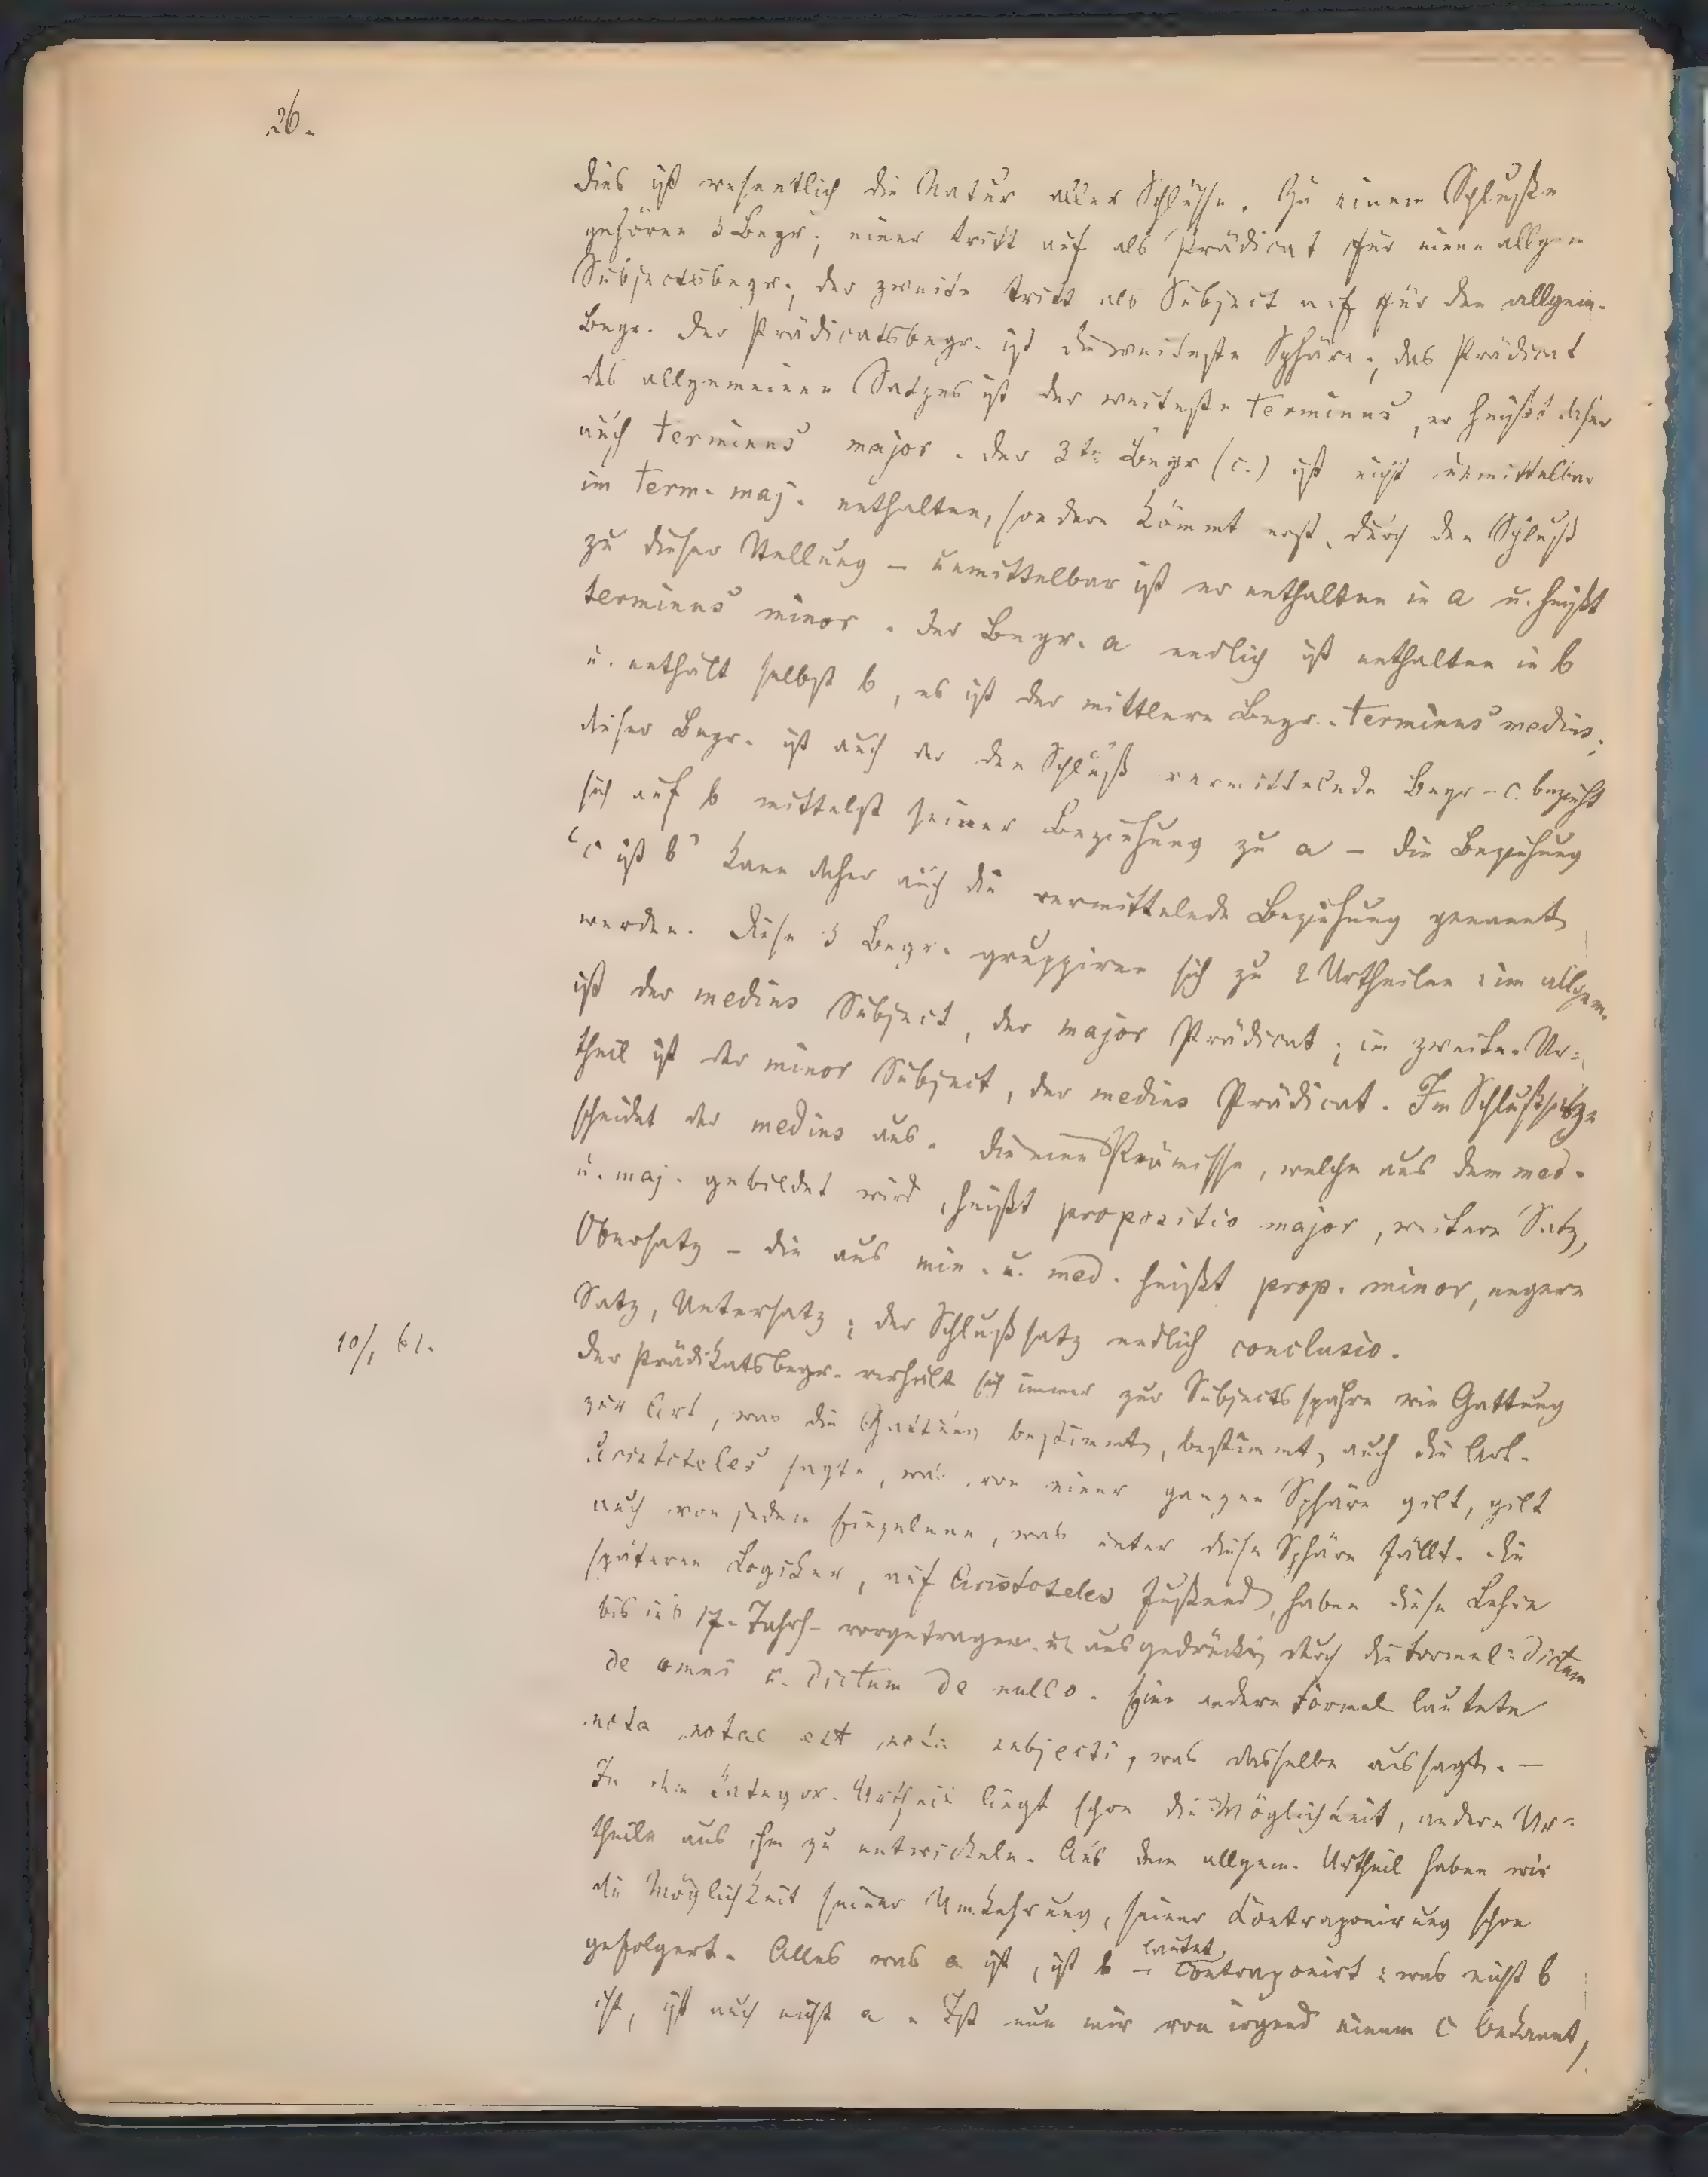 26.
dies ist wesentlich die Natur aller Schlüsse. Zu einem Schlusse
gehören 3 Begr.; einer tritt auf als Prädicat für einen allgem
Subjectsbegr., der zweite tritt als Subject auf für den allgem.
Begr. Der Prädicatsbegr. ist die weiteste Sphäre; das Prädicat
des allgemeinen Satzes ist der weiteste terminus, er heißt daher
auch terminus major. Der 3te Begr (c.) ist nicht unmittelbar
im term. maj. enthalten, sondern kömmt erst durch den Schluß
zu dieser Stellung – unmittelbar ist er enthalten in a u. heißt
terminus minor. Der Begr. a endlich ist enthalten in b
u. enthält selbst b, es ist der mittlere Begr. terminus medius;
dieser Begr. ist auch der den Schluß vermittelnde Begr – c. bezieht
sich auf b mittelst seiner Beziehung zu a – die Beziehung
"c ist b" kann daher auch die vermittelnde Beziehung genannt
werden. Diese 3 Begr. gruppiren sich zu 2 Urtheilen : im allgem.
ist der medius Subject, der major Prädicat; im zweiten Ur=
theil ist der minor Subject, der medius Prädicat. Im Schlußsatze
scheidet der medius aus. Die eine Prämisse, welche aus dem med.
u. maj. gebildet wird, heißt propositio major, weitere Satz,
Obersatz – die aus min. u. med. heißt prop. minor, engere
Satz, Untersatz; der Schlußsatz endlich conclusio.
10/1 61.
Der Prädikatsbegr. verhält sich immer zur Subjectssphäre wie Gattung
zur Art, was die Gattung bestimmt, bestimmt auch die Art.
Aristoteles sagte, was von einer ganzen Sphäre gilt, gilt
auch von jedem Einzelnen, was unter diese Sphäre fällt. Die
späteren Logiker, auf Aristoteles fußend, haben diese Lehre
bis ins 17. Jahrh. vorgetragen u. ausgedrückt durch die Formel: Dictum
de omni u. Dictum de nullo. Eine andere Formel lautete
nota notae est nota subjecti, was dasselbe aussagt. –
In dem kategor. Urtheil liegt schon die Möglichkeit, andere Ur=
theile aus ihm zu entwickeln. Aus dem allgem. Urtheil haben wir
die Möglichkeit seiner Umkehrung, seiner Contraponirung schon
gefolgert. Alles was a ist, ist b – lautet contraponirt : was nicht b
ist, ist auch nicht a. Ist nun mir von irgend einem c bekannt,